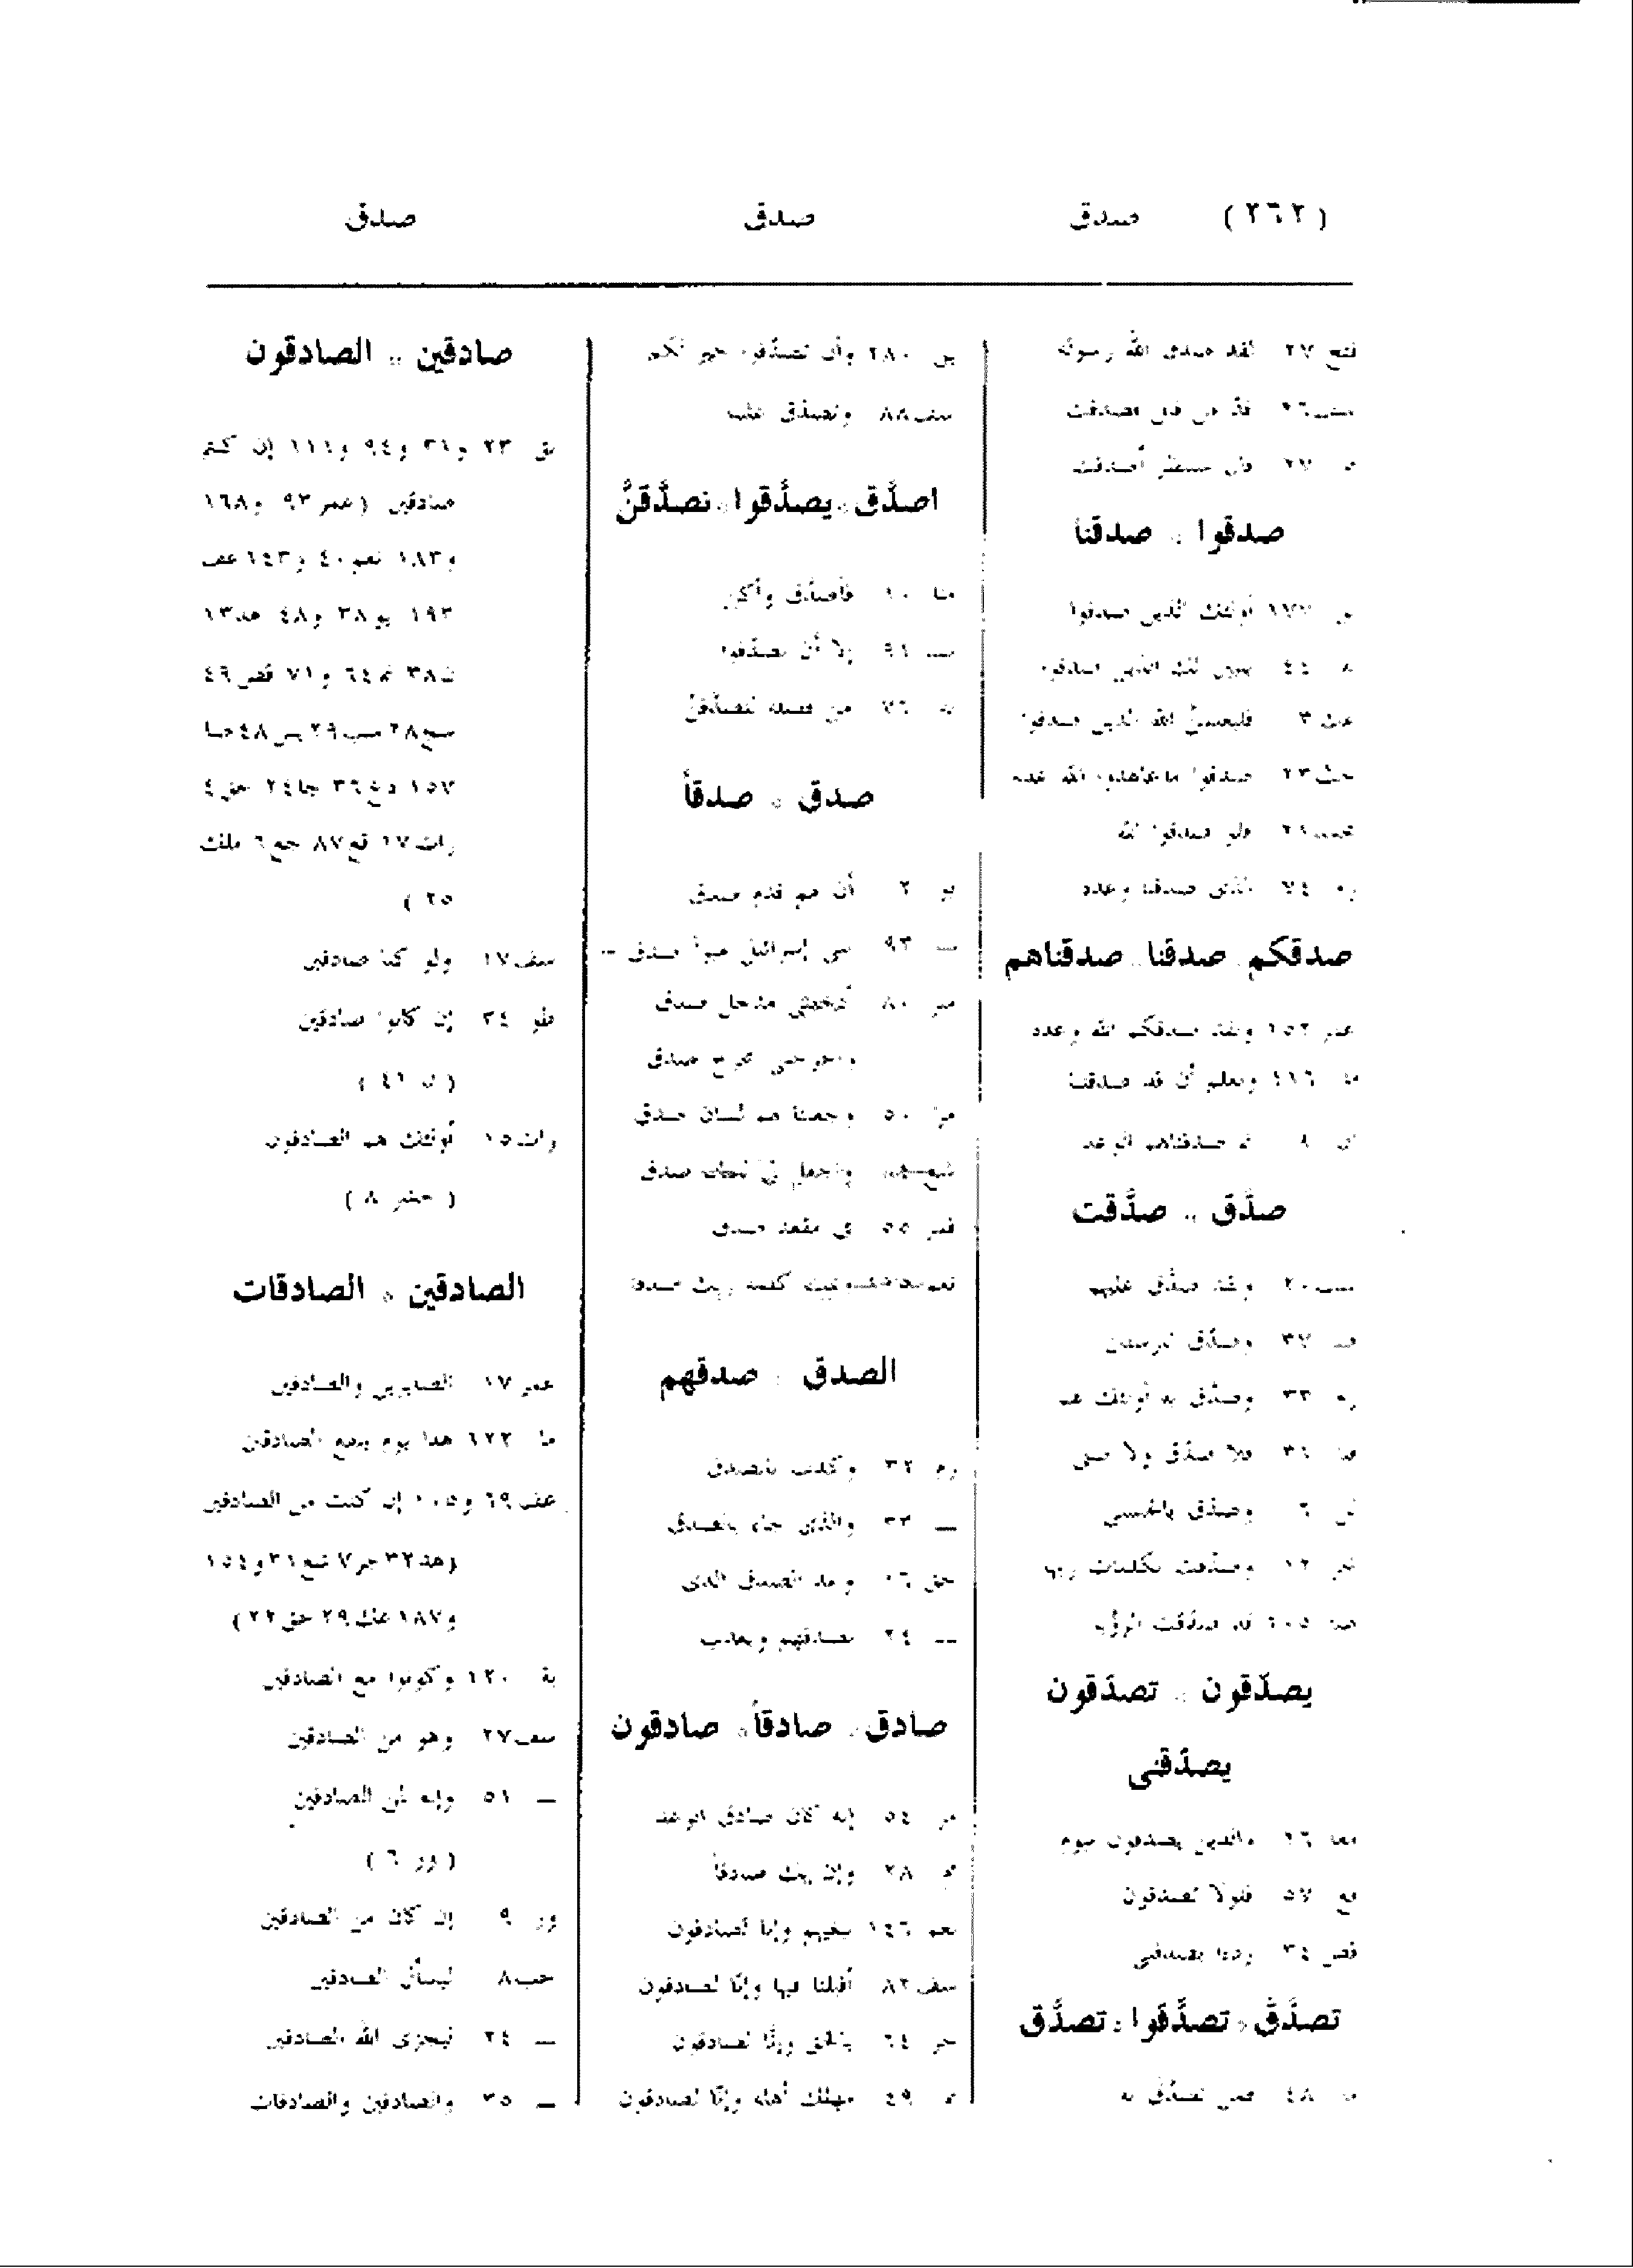 ( ٢٦٢ ) صدق صدق صدق
فتح ٢٧ لقد صدق الله رسوله
سف ٢٦ قدّ من قبل فصدقت
٢٧ قال سننظر أصدقت
صدقوا .. صدقنا
بق ١٧٧ أولئك الذين صدقوا
٤٤ يتبين لك الذين صدقوا
عك ٣ فليعلمنّ الله الذين صدقوا
حب ٢٣ صدقوا ما عاهدوا الله عليه
٢١ فلو صدقوا الله
٧٤ الذى صدقنا وعده
صدقكم .. صدقنا .. صدقناهم
عمر ١٥٢ ولقد صدقكم الله وعده
ما ١١٦ ونعلم أن قد صدقتنا
ان ٨ ثم صدقناهم الوعد
صدَّق .. صدَّقت
سب ٢٠ ولقد صدّق عليهم
٣٧ وصدّق المرسلين
٣٣ وصدّق به أولئك هم
٣١ فلا صدّق ولا صلى
٦ وصدّق بالحسنى
١٢ وصدّقت بكلمات ربها
١٠٥ قد صدّقت الرؤيا
يصدّقون .. تصدّقون
يصدّقنى
معا ٢٦ والذين يصدقون بيوم
قع ٥٧ فلولا تصدقون
قص ٣٤ ردءا يصدقنى
تصدَّق .. تصدَّقوا .. تصدَّق
٤٨ فمن تصدّق به
بق ٢٨٠ وأن تصدّقوا خير لكم
سف ٨٨ وتصدّق علينا
اصدَّق .. يصدَّقوا .. نصدَّقنَّ
منا ١٠ فأصدّق وأكن
٩٢ إلا أن يصدّقوا
٧٦ من فضله لنصدّقنّ
صدق .. صدقاً
يو ٢ أن لهم قدم صدق
— ٩٣ بنى إسرائيل مبوأ صدق
٨٠ أدخلنى مدخل صدق
وأخرجنى مخرج صدق
مر ٥٠ وجعلنا لهم لسان صدق
واجعل لى لسان صدق
قمر ٥٥ فى مقعد صدق
كلمة ربك صدقا
الصدق .. صدقهم
٣٢ وكذب بالصدق
— ٣٣ والذى جاء بالصدق
حق ١٦ وعد الصدق الذى
— ٢٤ بصدقهم ويعذب
صادق .. صادقاً .. صادقون
مر ٥٤ إنه كان صادق الوعد
٢٨ وإن يك صادقاً
نعم ١٤٦ ببغيهم وإنا لصادقون
سف ٨٢ أقبلنا فيها وإنّا لصادقون
حر ٦٤ بالحق وإنّا لصادقون
٤٩ مهلك أهله وإنّا لصادقون
صادقين .. الصادقون
بق ٢٣ و٣١ و٩٤ و١١١ إن كنتم
صادقين ( عمر ٩٣ و١٦٨
و١٨٣ نعم ٤٠ و١٤٣ عف
١٩٣ يو ٣٨ و٤٨ هد ١٣
٣٨ نم ٦٤ و٧١ قص ٤٩
سج ٢٨ سب ٢٩ يس ٤٨ صا
١٥٧ دخ ٣٦ جا ٢٤ حق ٤
رات ١٧ قع ٨٧ جع ٦ ملك
٢٥ )
سف ١٧ ولو كنا صادقين
طو ٣٤ إن كانوا صادقين
( ن ٤١ )
رات ١٥ أولئك هم الصادقون
( حشر ٨ )
الصادقين .. الصادقات
عمر ١٧ الصابرين والصادقين
ما ١٢٢ هذا يوم ينفع الصادقين
عف ٦٩ و١٠٥ إن كنت من الصادقين
( هد ٣٢ حر ٧ شع ٣١ و١٥٤
و١٨٧ عك ٢٩ حق ٢٢ )
بة ١٢٠ وكونوا مع الصادقين
سف ٢٧ وهو من الصادقين
— ٥١ وإنه لمن الصادقين
( ور ٦ )
ور ٩ إن كان من الصادقين
حب ٨ ليسأل الصادقين
— ٢٤ ليجزى الله الصادقين
— ٣٥ والصادقين والصادقات